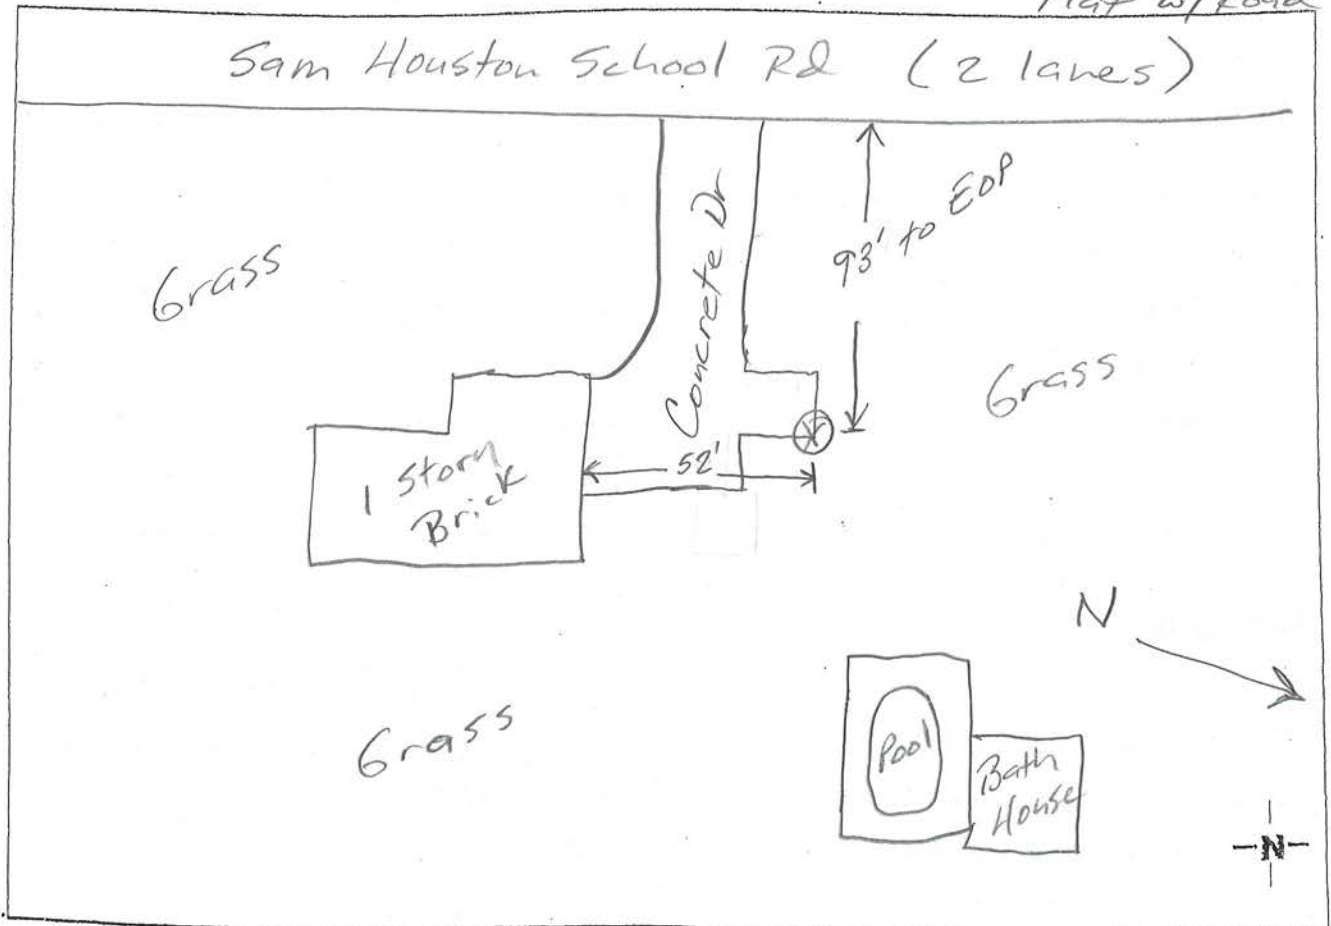 Sam Houston School Rd (2 lanes)
Concrete Dr
93' to EOP
Grass
Grass
1 Story
Brick
52'
N
Grass
Pool
Bath
House
N